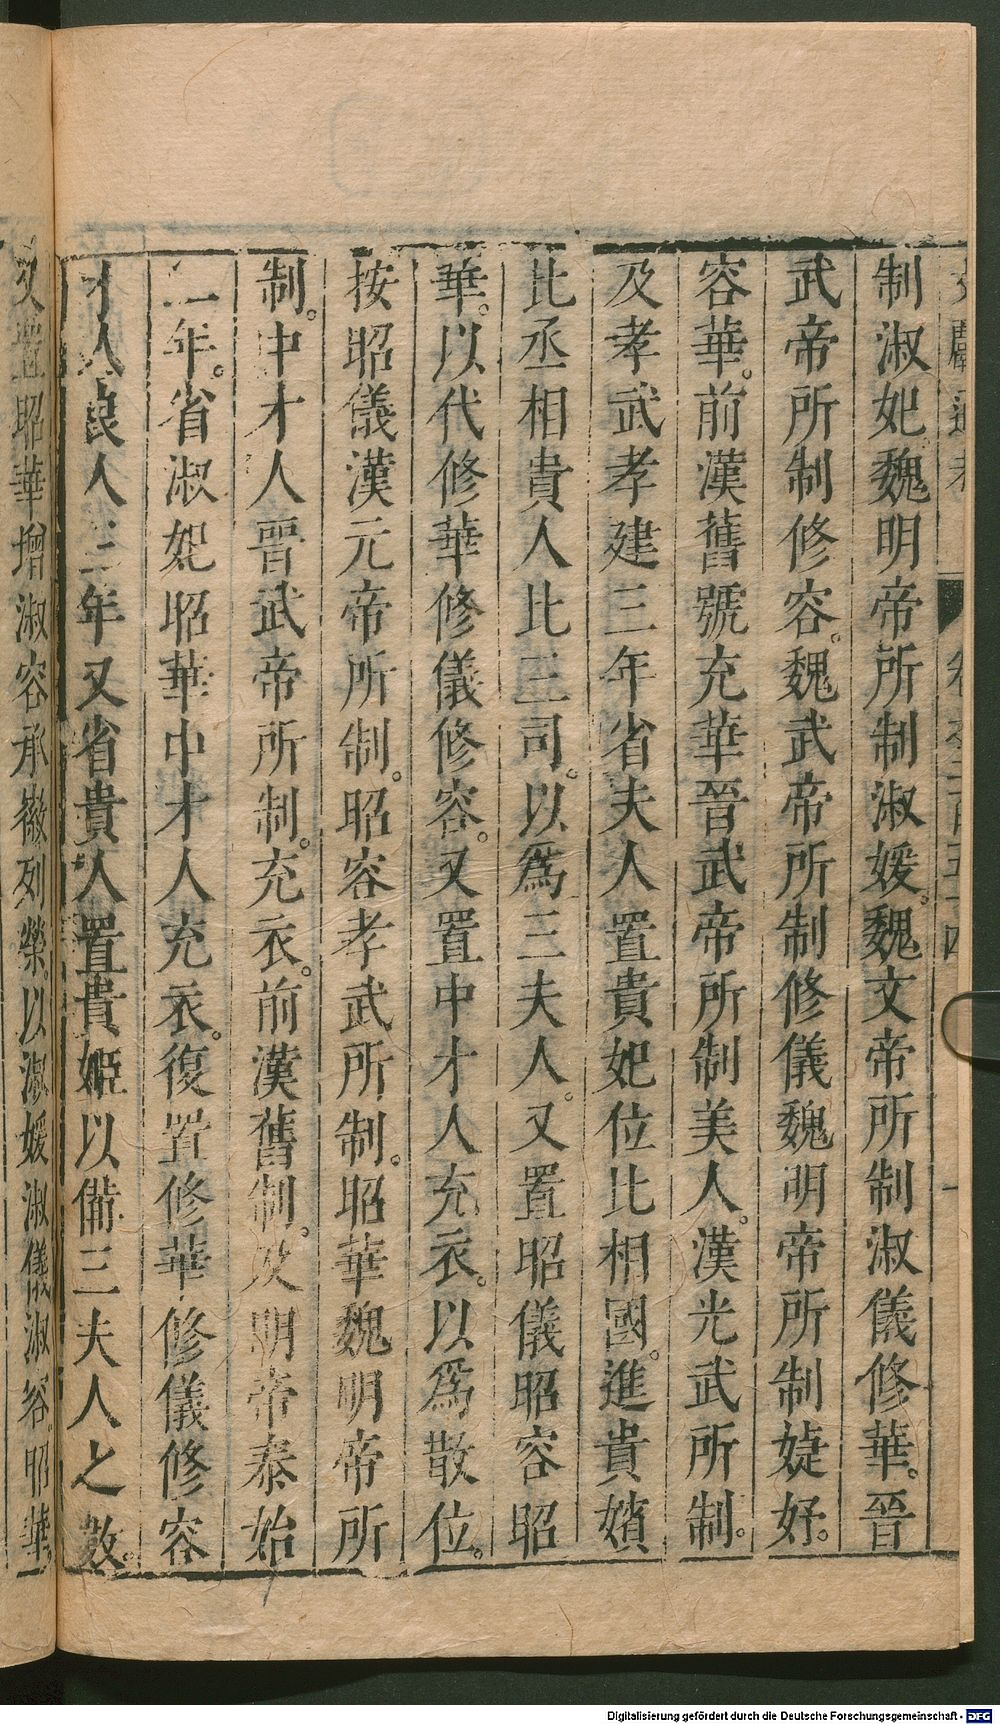 文獻通考 卷之二百五十四 一
制淑妃魏明帝所制淑媛魏文帝所制淑儀修華。晉
武帝所制修容。魏武帝所制修儀魏明帝所制婕妤。
容華。前漢舊號充華晉武帝所制美人。漢光武所制。
及孝武孝建三年省夫人置貴妃位比相國。進貴嬪
比丞相貴人比三司。以爲三夫人。又置昭儀昭容昭
華。以代修華修儀修容。又置中才人充衣。以爲散位。
按昭儀漢元帝所制。昭容孝武所制。昭華魏明帝所
制。中才人晉武帝所制。充衣。前漢舊制。及明帝泰始
二年。省淑妃昭華中才人充衣。復置修華修儀修容
才人良人三年又省貴人置貴姬以備三夫人之數。
又置昭華增淑容承徽列榮。以淑媛淑儀淑容昭華。
Digitalisierung gefördert durch die Deutsche Forschungsgemeinschaft - DFG